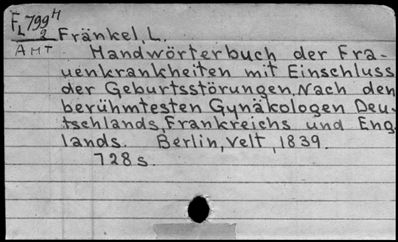 FL 799 H
2
AMT
Fränkel, L.
Handwörterbuch der Fra-
uenkrankheiten mit Einschluss
der Geburtsstörungen. Nach den
berühmtesten Gynäkologen Deu-
tschlands, Frankreichs und Eng-
lands. Berlin, Velt, 1839.
728 s.